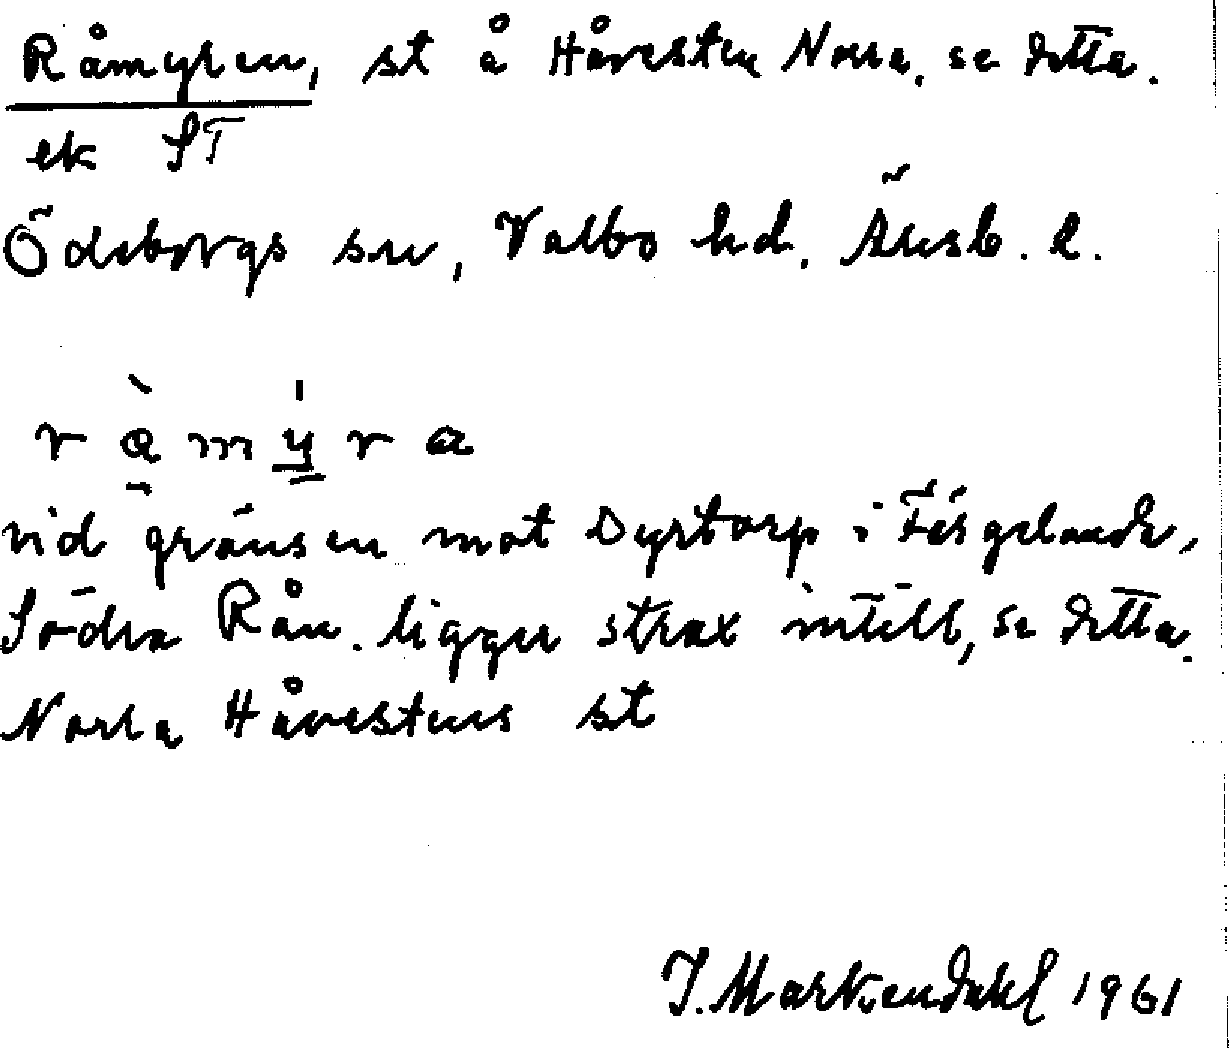 Råmyren, st å Håvesten Norra, se detta.
ek ST
Ödeborgs sn, Valbo hd, Älvsb. l.
råmýra
vid gränsen mot Dyrtorp i Färgelanda,
Södra Rån. ligger strax intill, se detta.
Norra Håvestens st
J. Markendahl 1961